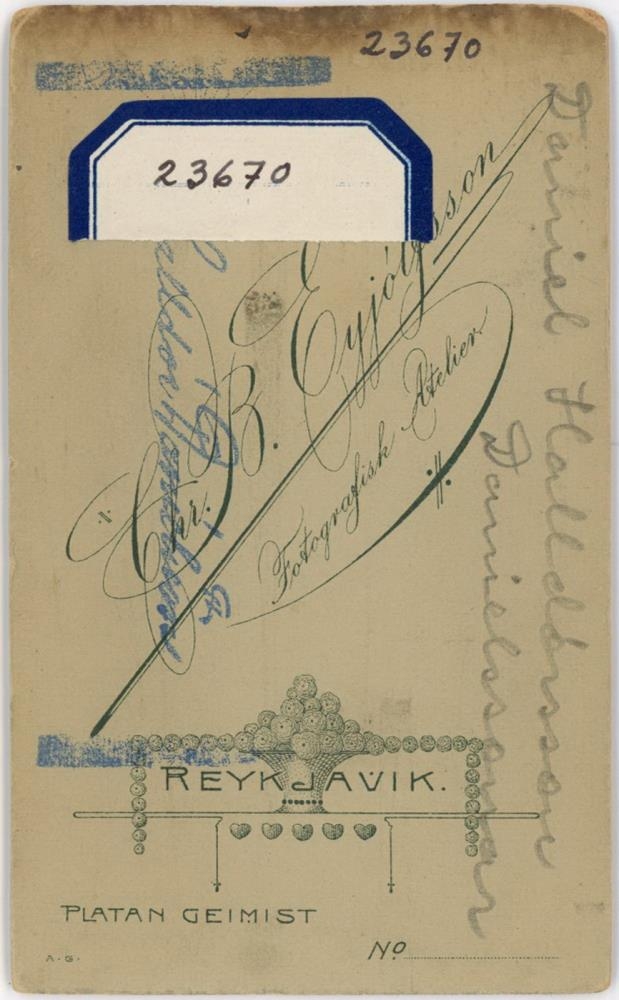 23670
23670
Chr. B. Eyjólfsson
Fotografisk Atelier
Daniel Halldórsson
Danielssonar
REYKJAVIK.
PLATAN GEIMIST
A. G.
No